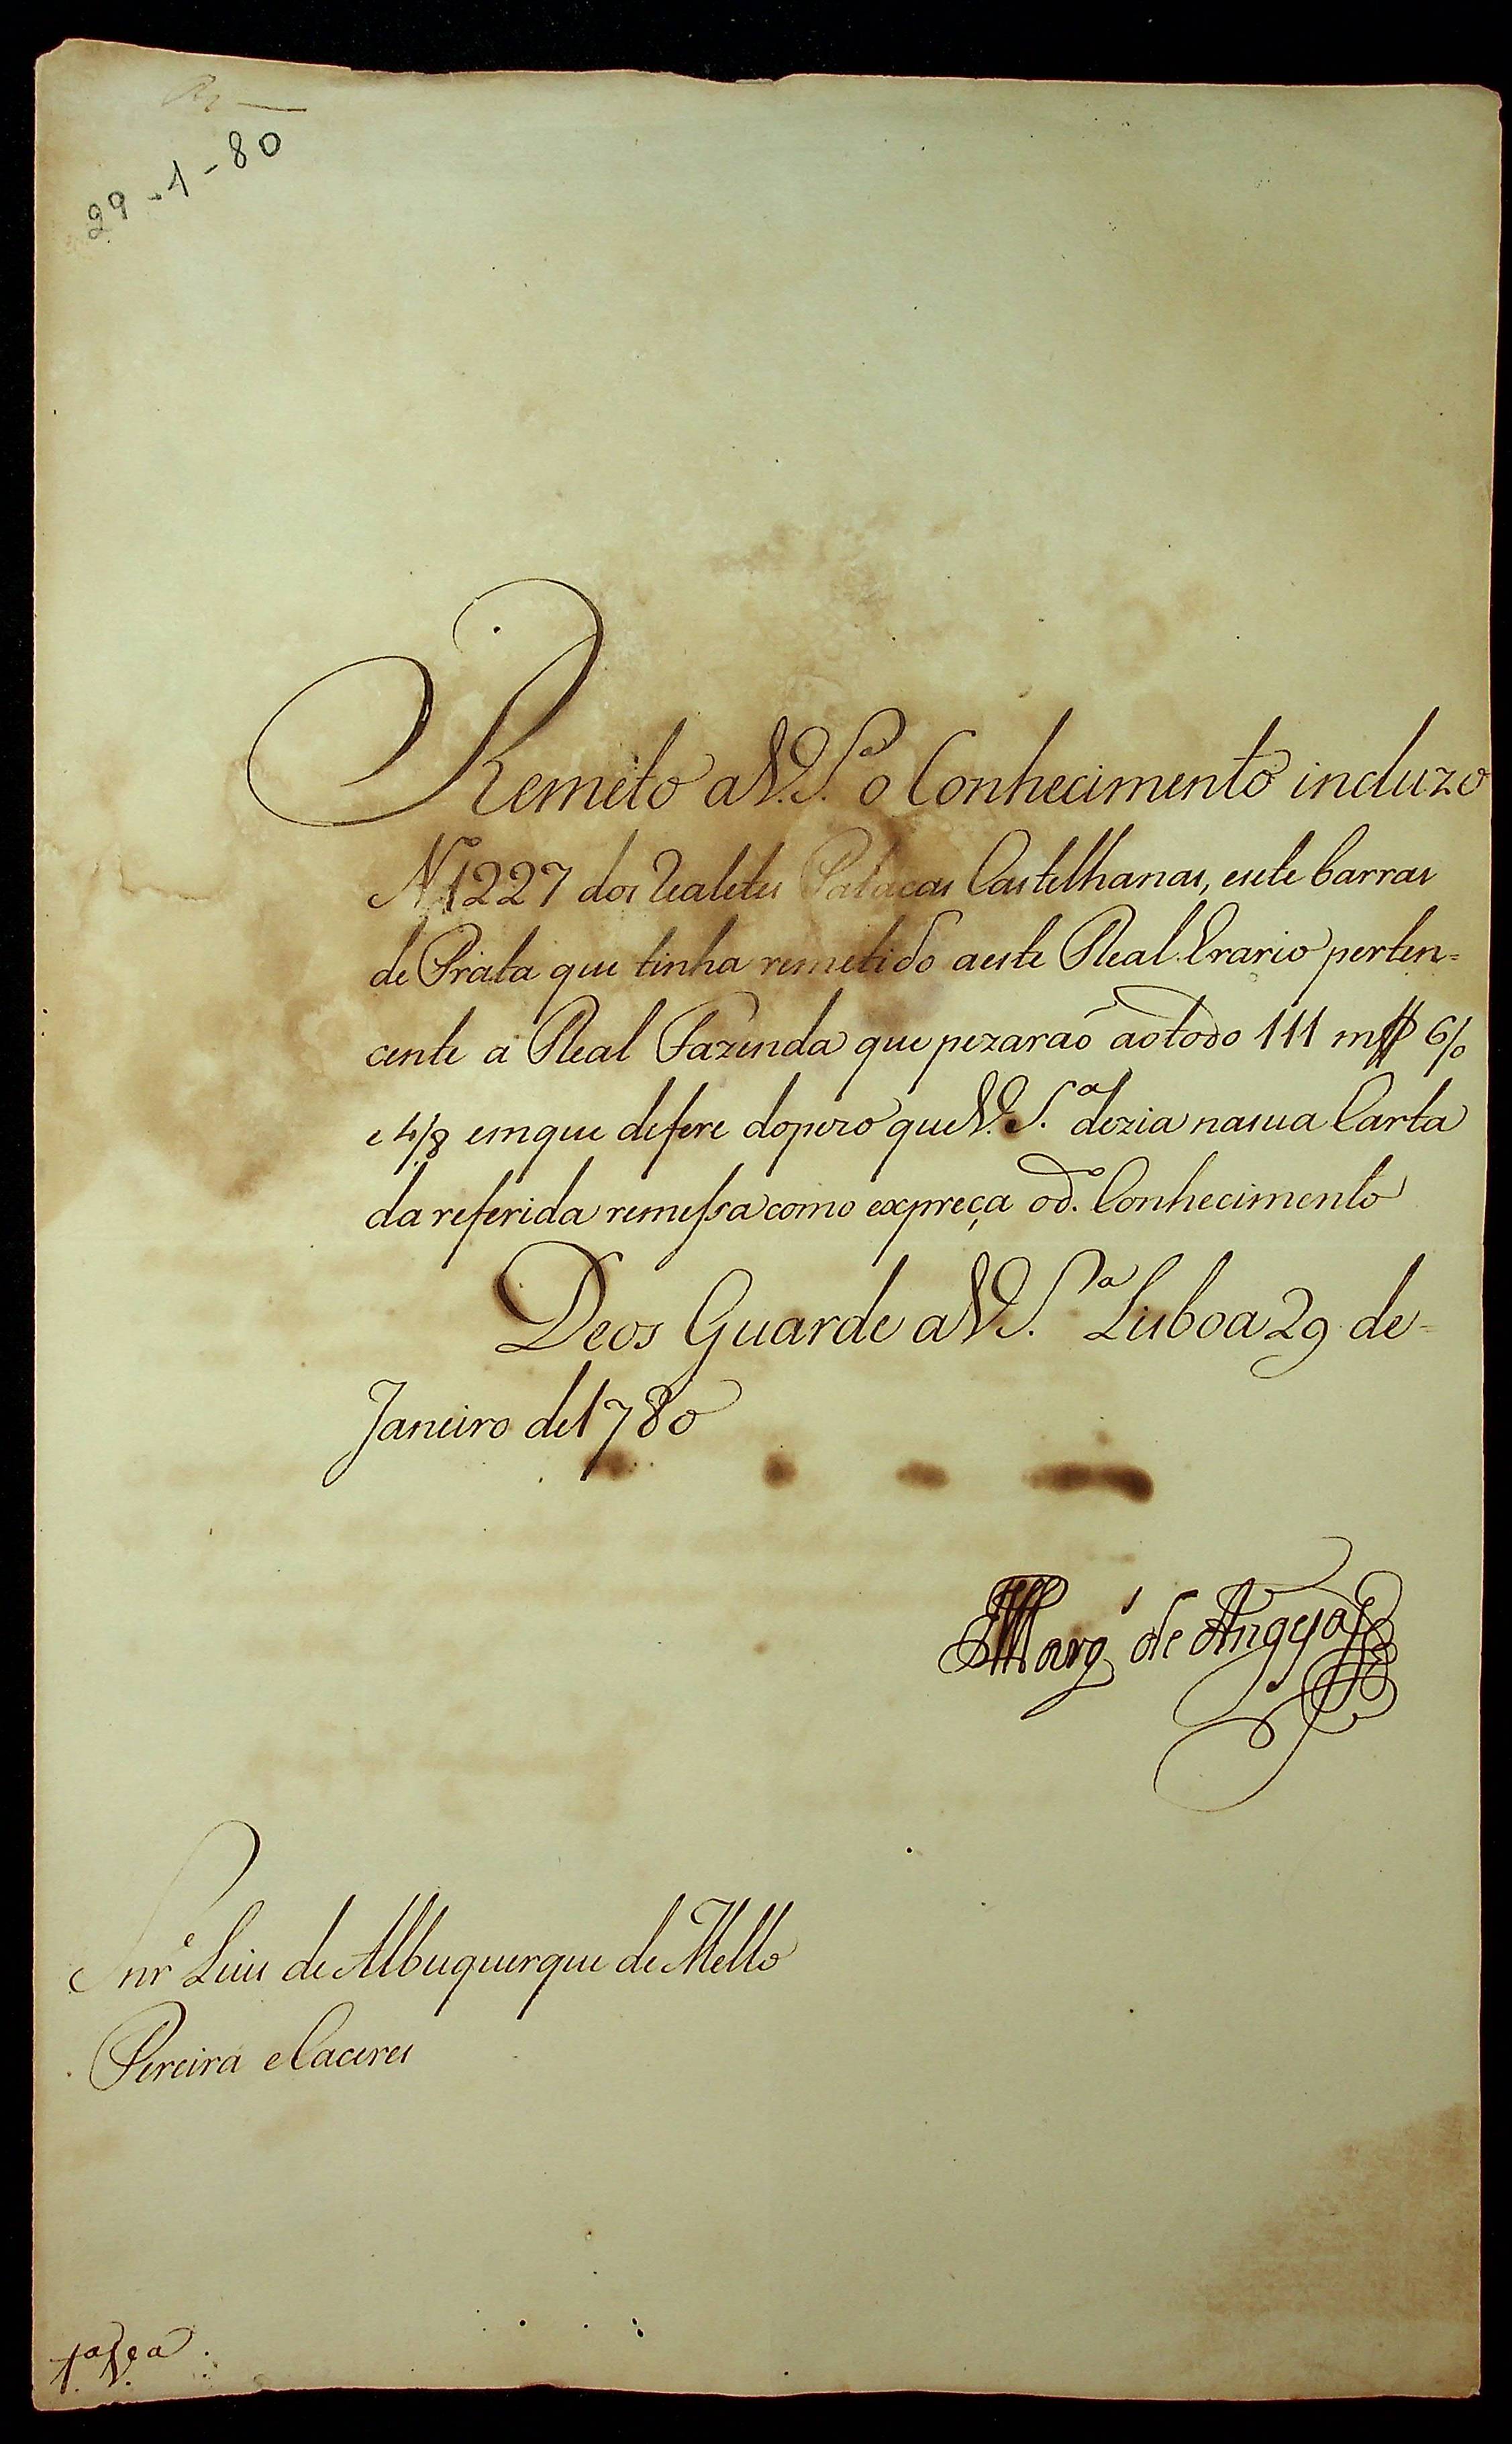 29-1-80
Remeto a V. S.ª o Conhecimento incluzo
N.º 1227 dos Realetes Patacas Castelhanas, e sete barras
de Prata que tinha remetido a este Real Erario perten=
cente á Real Fazenda que pezaraõ ao todo 111 m
e 4/8 em que defere do pezo que V. S.ª dezia na sua Carta
da referida remessa como expreça o d.º Conhecimento
Deos Guarde a V S.ª Lisboa 29 de=
Janeiro de 1780
Marq.' de Angeja
Snr.ᵉ Luis de Albuquerque de Mello
Pereira e Caceres
1.ª V.ª